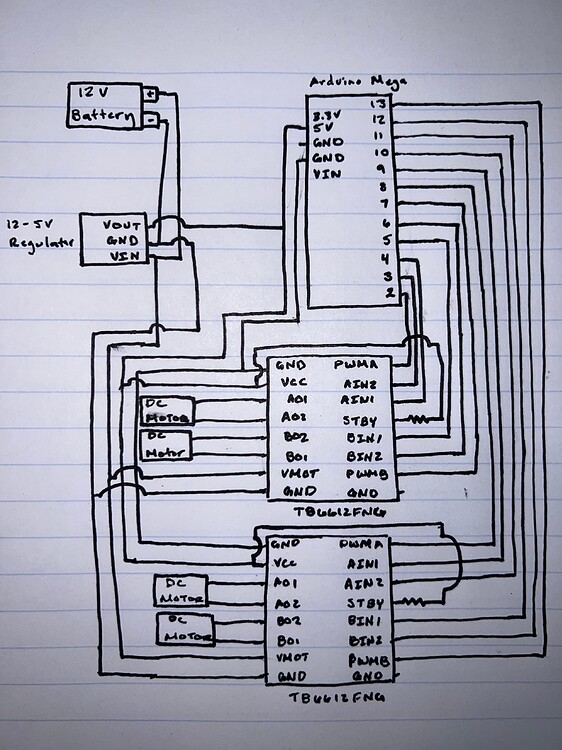 Arduino Mega
12 V
Battery
+
-
3.3V
5V
GND
GND
VIN
13
12
11
10
9
8
7
6
5
4
3
2
12-5V
Regulator
VOUT
GND
VIN
GND
VCC
AO1
AO2
BO2
BO1
VMOT
GND
PWMA
AIN2
AIN1
STBY
BIN1
BIN2
PWMB
GND
DC
MOTOR
DC
Motor
TB6612FNG
GND
VCC
AO1
AO2
BO2
BO1
VMOT
GND
PWMA
AIN1
AIN2
STBY
BIN1
BIN2
PWMB
GND
DC
MOTOR
DC
MOTOR
TB6612FNG